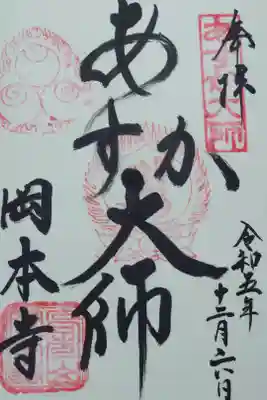 奉拝
令和五年
十二月二六日
あすか大師
岡本寺